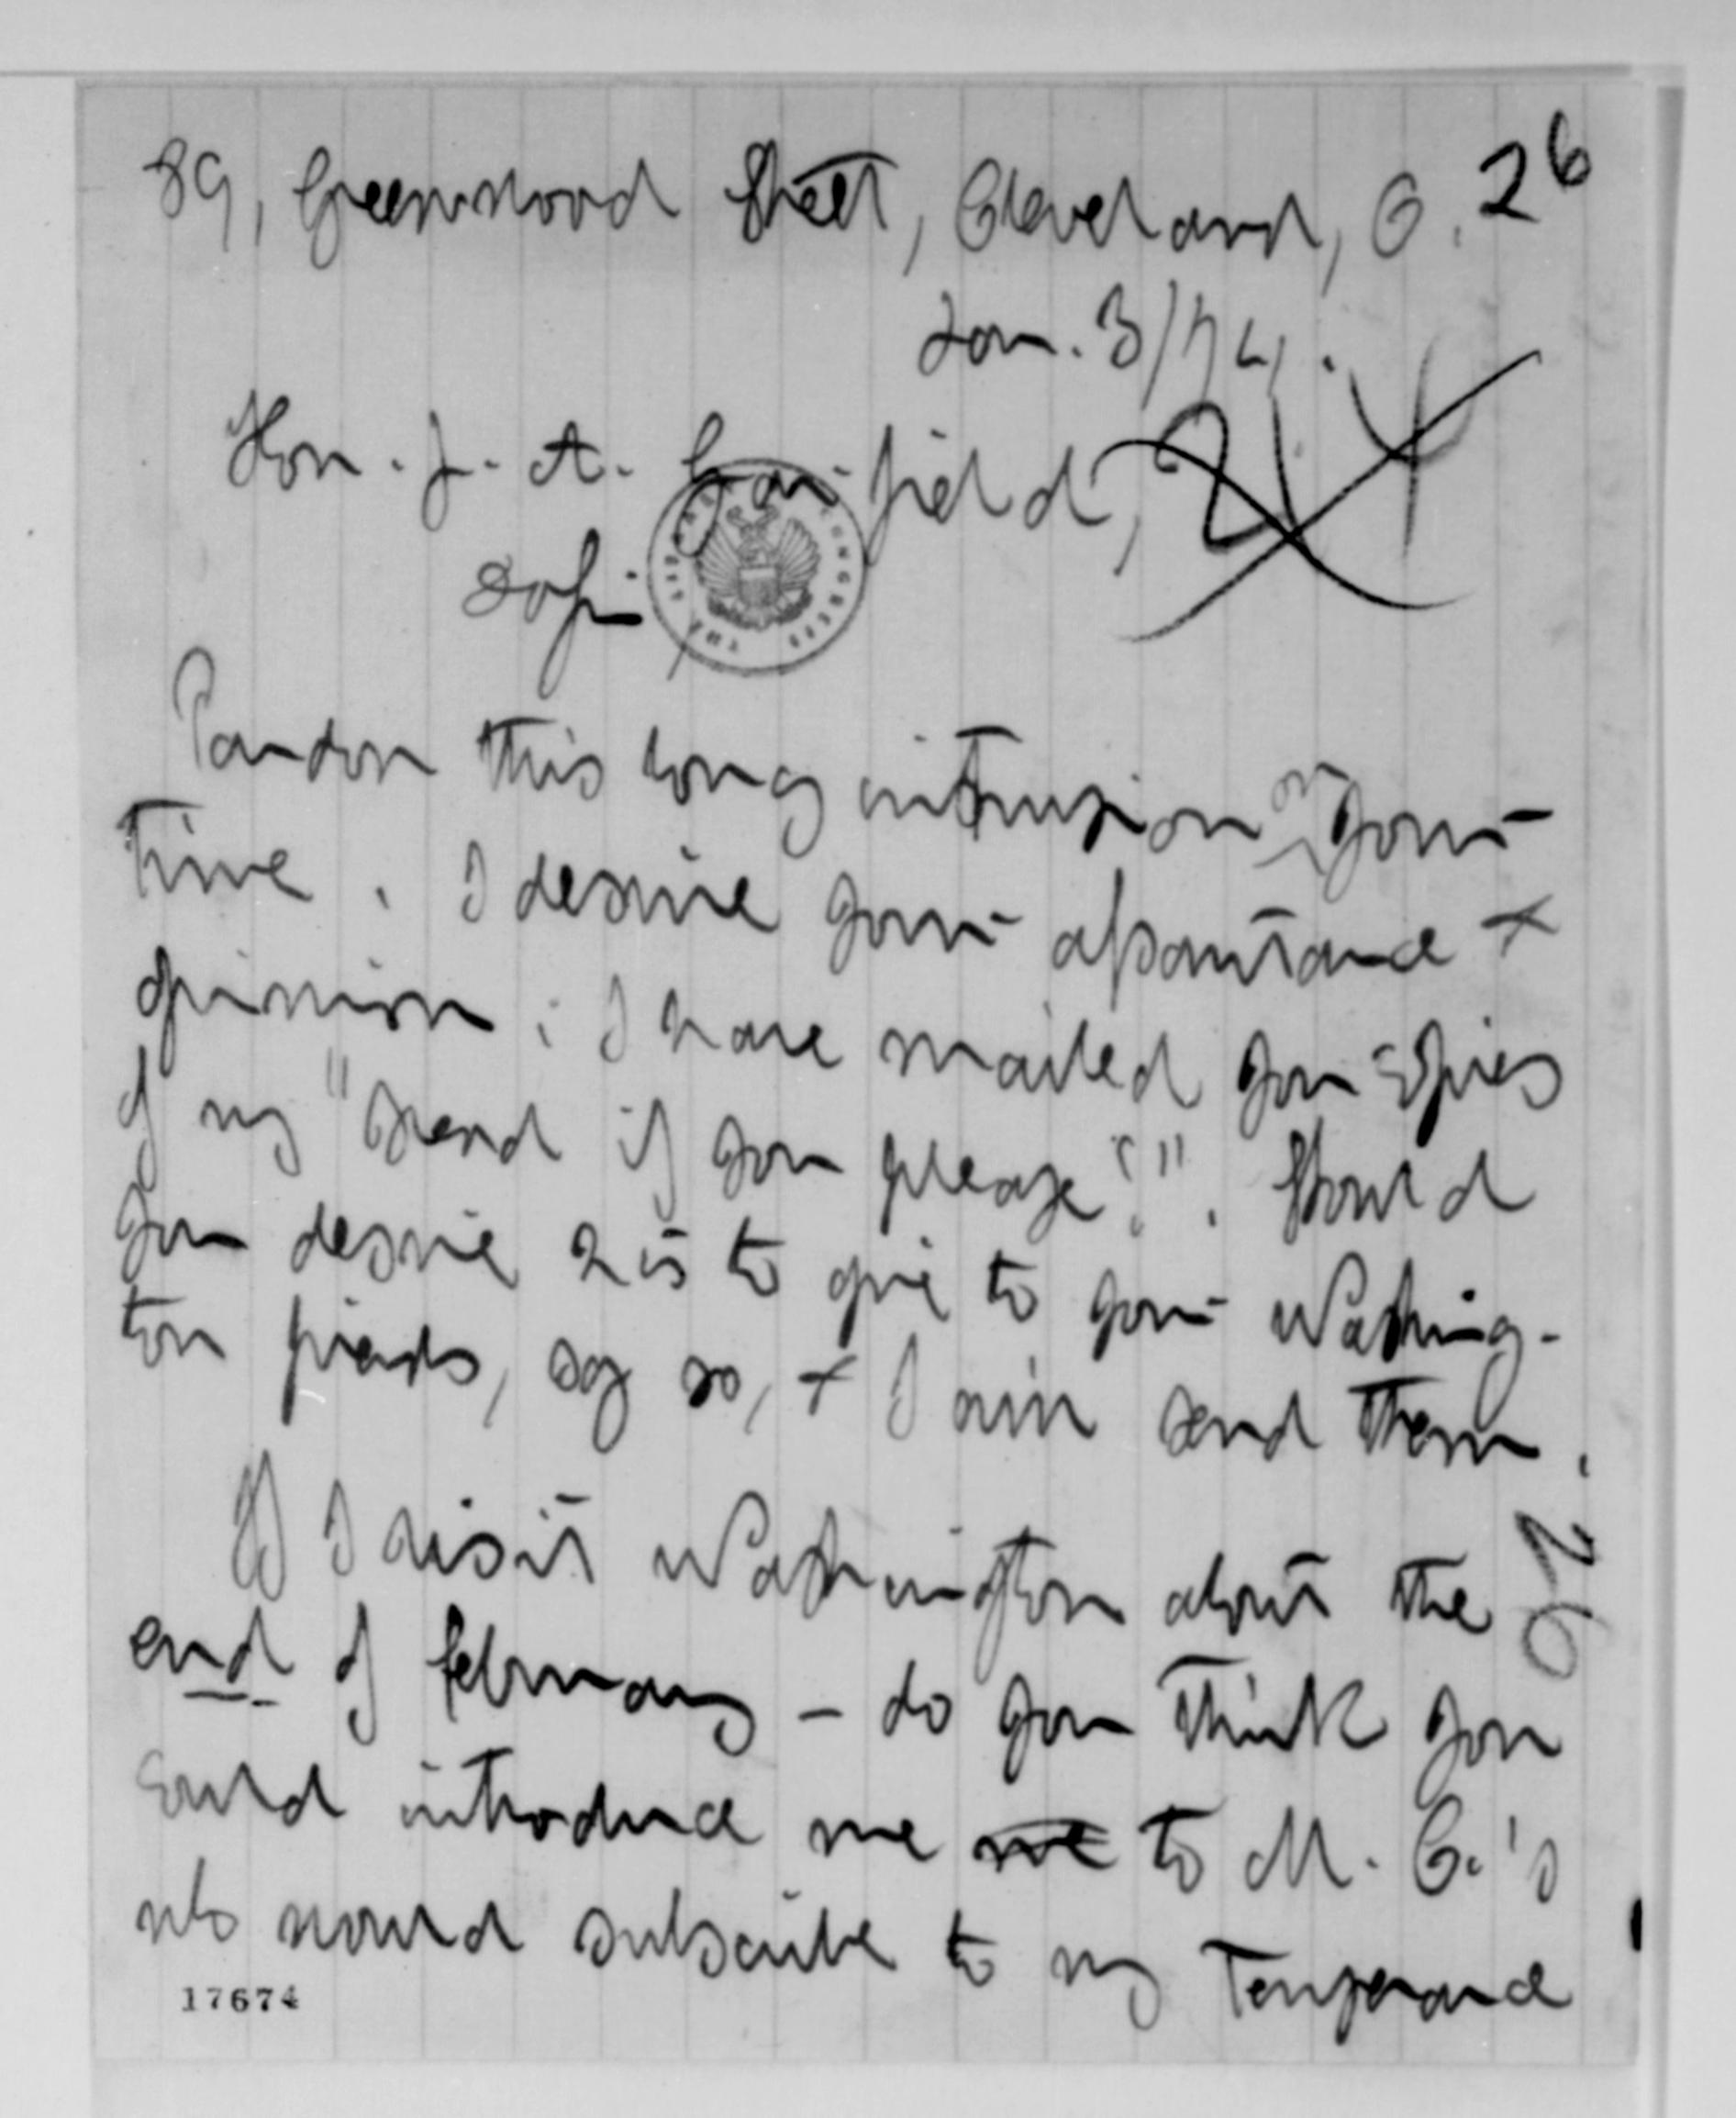 89, Greenwood Street, Cleveland, O. 26
Jan. 3/74.
Hon. J. A. Garfield, 24
Pardon this long intrusion on your
time. I desire your assistance +
opinion: I have mailed you copies
of my "Spend if you please!". Should
you desire to give to your Washing-
ton friends, say so, + I will send them.
If I visit Washington about the
26
end of February - do you think you
could introduce me me to M. C.'s
who would subscribe to my Temperance
17674